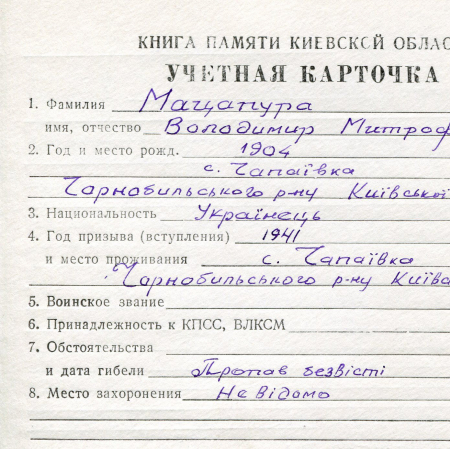 КНИГА ПАМЯТИ КИЕВСКОЙ ОБЛАС
УЧЕТНАЯ КАРТОЧКА
1. Фамилия Мацапура
имя, отчество Володимир Митроф
2. Год и место рожд. 1904
с. Чапаївка
Чорнобильського р-ну Київської
3. Национальность Українець
4. Год призыва (вступления) 1941
и место проживания с. Чапаївка
Чорнобильського р-ну Київс
5. Воинское звание
6. Принадлежность к КПСС, ВЛКСМ
7. Обстоятельства
и дата гибели Пропав безвісті
8. Место захоронения Невідомо